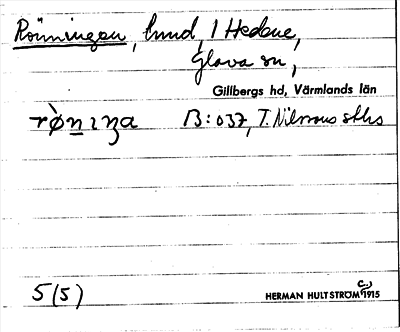 Rönningen, lund, 1 Hedane,
Glava sn,
Gillbergs hd, Värmlands län
rø̀nɩŋa B: 037, T. Nilssons sths
5(5)
HERMAN HULTSTRÖM c.) 1915